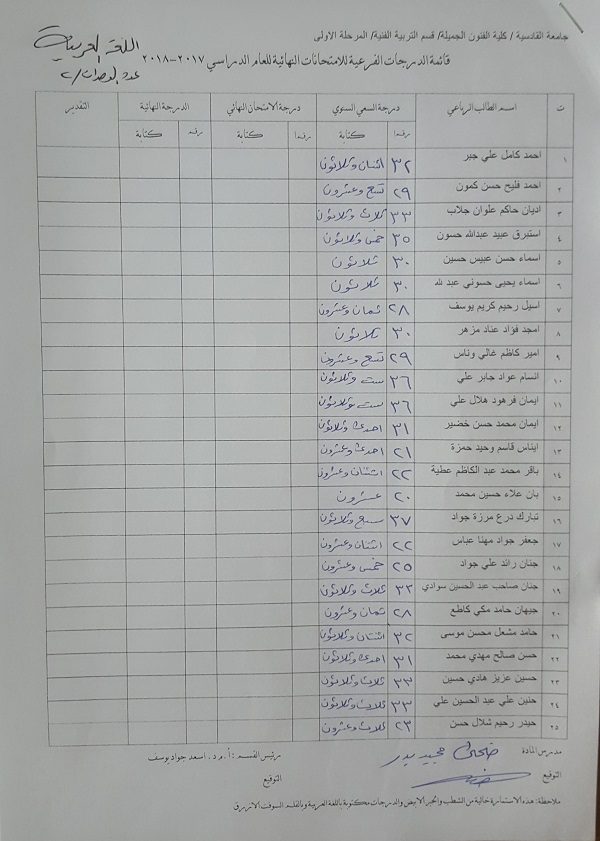 جامعة القادسية / كلية الفنون الجميلة/ قسم التربية الفنية/ المرحلة الاولى
اللغة العربية
قائمة الدرجات الفرعية للامتحانات النهائية للعام الدراسي ٢٠١٧-٢٠١٨
عدد الوحدات /٢
ت اسم الطالب الرباعي درجة السعي السنوي درجة الامتحان النهائي الدرجة النهائية التقدير
رقما كتابة رقما كتابة رقما كتابة
١ احمد كامل علي جبر ٣٢ اثنان وثلاثون
٢ احمد فليح حسن كمون ٢٩ تسع وعشرون
٣ اديان حاكم علوان جلاب ٣٣ ثلاث وثلاثون
٤ استبرق عبيد عبدالله حسون ٣٥ خمس وثلاثون
٥ اسماء حسن عبيس حسين ٣٠ ثلاثون
٦ اسماء يحيى حسوني عبد لله ٣٠ ثلاثون
٧ اسيل رحيم كريم يوسف ٢٨ ثمان وعشرون
٨ امجد فؤاد عناد مزهر ٣٠ ثلاثون
٩ امير كاظم غالي وناس ٢٩ تسع وعشرون
١٠ انسام عواد جابر علي ٣٦ ست وثلاثون
١١ ايمان فرهود هلال علي ٣٦ ست وثلاثون
١٢ ايمان محمد حسن خضير ٣١ احدى وثلاثون
١٣ ايناس قاسم وحيد حمزة ٢١ احدى وعشرون
١٤ باقر محمد عبد الكاظم عطية ٢٢ اثنتان وعشرون
١٥ بان علاء حسين محمد ٢٠ عشرون
١٦ تبارك درع مرزة جواد ٣٧ سبع وثلاثون
١٧ جعفر جواد مهنا عباس ٢٢ اثنتان وعشرون
١٨ جنان رائد علي جواد ٢٥ خمس وعشرون
١٩ جنان صاحب عبد الحسين سوادي ٣٣ ثلاث وثلاثون
٢٠ جيهان حامد مكي كاطع ٢٨ ثمان وعشرون
٢١ حامد مشعل محسن موسى ٣٢ اثنتان وثلاثون
٢٢ حسن صالح مهدي محمد ٣١ احدى وثلاثون
٢٣ حسين عزيز هادي حسين ٣٣ ثلاث وثلاثون
٢٤ حنين علي عبد الحسين علي ٣٣ ثلاث وثلاثون
٢٥ حيدر رحيم شلال حسن ٢٣ ثلاث وعشرون
مدرس المادة مجيد رئيس القسم : أ.م.د. اسعد جواد يوسف
التوقيع التوقيع
ملاحظة: هذه الاستمارة خالية من الشطب والحبر الابيض والدرجات مكتوبة باللغة العربية وبالقلم السوفت الازرق